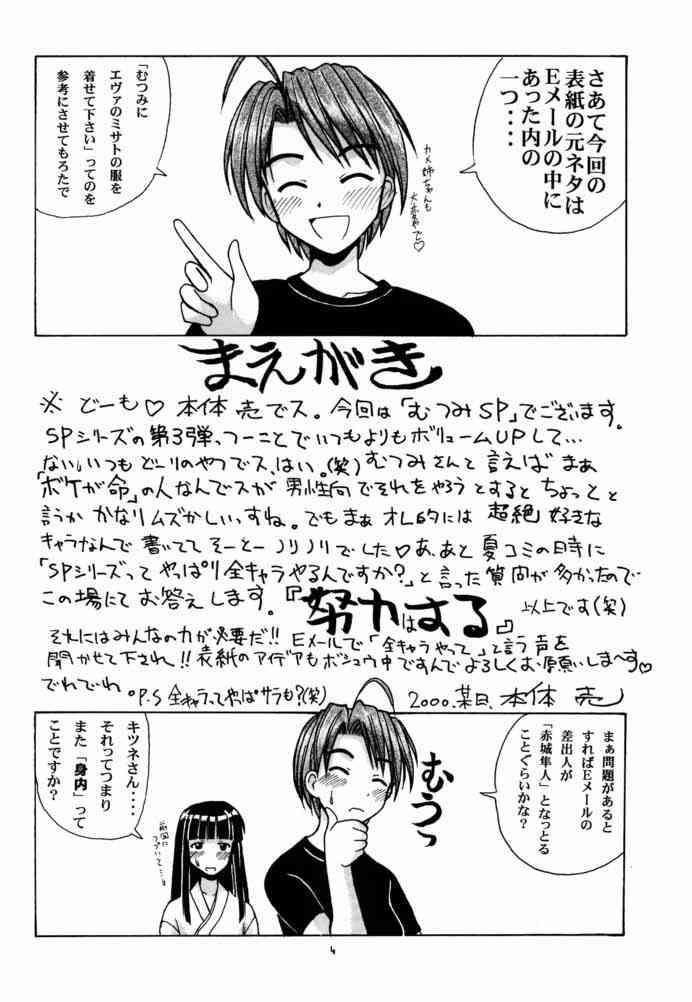 さあて今回の
表紙の元ネタは
Eメールの中に
あった内の
一つ・・・
「むつみに
エヴァのミサトの服を
着せて下さい」ってのを
参考にさせてもろたで
カメ姉ちゃんも
大変やで♡
まえがき
※ どーも♡ 本体 売でス。今回は「むつみSP」でございます。
SPシリーズの第3弾、つーことでいつもよりもボリュームUPして…
ないいつもどーりのやつでス、はい。(笑) むつみさんと言えば まあ
「ボケが命」の人なんでスが 男性向でそれをやろうとすると ちょっと と
言うか かなりムズかしいっすね。でもまぁ オレ的には 超絶 好きな
キャラなんで 書いてて そーとーノリノリでした♡ あ、あと 夏コミの時に
「SPシリーズって やっぱり全キャラやるんですか?」と言った質問が多かったので
この場にて お答えします。『努力はする』 以上です(笑)
それにはみんなの力が必要だ!! Eメールで「全キャラやって」と言う声を
聞かせて下され!! 表紙のアイデアもボシュウ中ですんで よろしくお願いしま〜す♡
でわでわ。P.S 全キャラってやっぱサラも?(笑) 2000.某日、本体 売
まぁ問題があると
すればEメールの
差出人が
「赤城隼人」となっとる
ことぐらいかな?
むうっ
キツネさん・・・・
それってつまり
また「身内」って
ことですか?
前回に
つづいて…
4